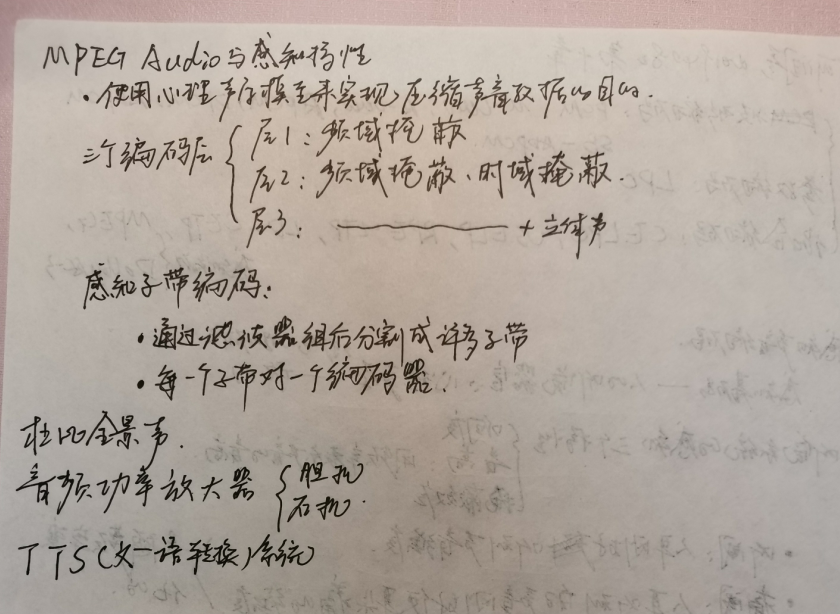 MPEG Audio与感知特性
·使用心理声学模型来实现压缩声音数据的目的.
三个编码层
层1:频域掩蔽
层2:频域掩蔽、时域掩蔽.
层3: + 立体声
感知子带编码:
·通过滤波器组后分割成许多子带
·每一个子带对一个编码器.
杜比全景声.
音频功率放大器
胆机
石机.
TTS(文-语转换)系统